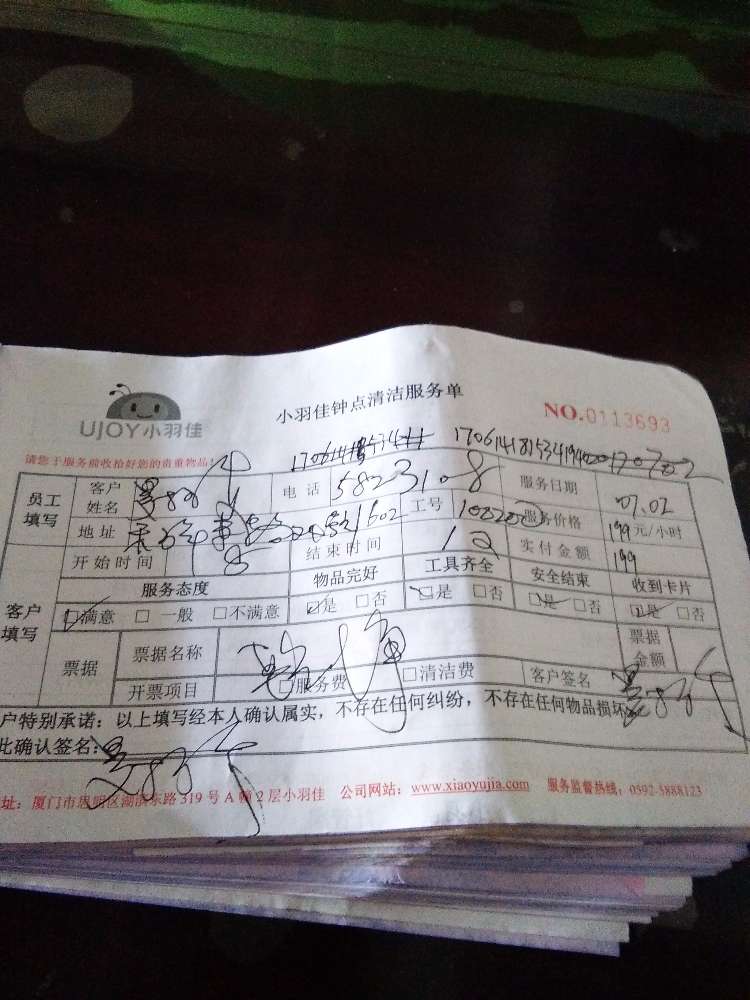 UJOY小羽佳
小羽佳钟点清洁服务单
NO.0113693
请您于服务前收拾好您的贵重物品!
员工填写 客户姓名 电话 5823108 服务日期 07.02
地址 1602 工号 服务价格 199元/小时
开始时间 8 结束时间 12 实付金额 199
客户填写 服务态度 物品完好 工具齐全 安全结束 收到卡片
☑满意 □一般 □不满意 ☑是 □否 ☑是 □否 ☑是 □否 ☑是 □否
票据 票据名称 票据金额
开票项目 □服务费 □清洁费 客户签名
户特别承诺:以上填写经本人确认属实,不存在任何纠纷,不存在任何物品损坏
此确认签名:
址:厦门市思明区湖滨东路319号A幢2层小羽佳 公司网站:www.xiaoyujia.com 服务监督热线:0592-5888123